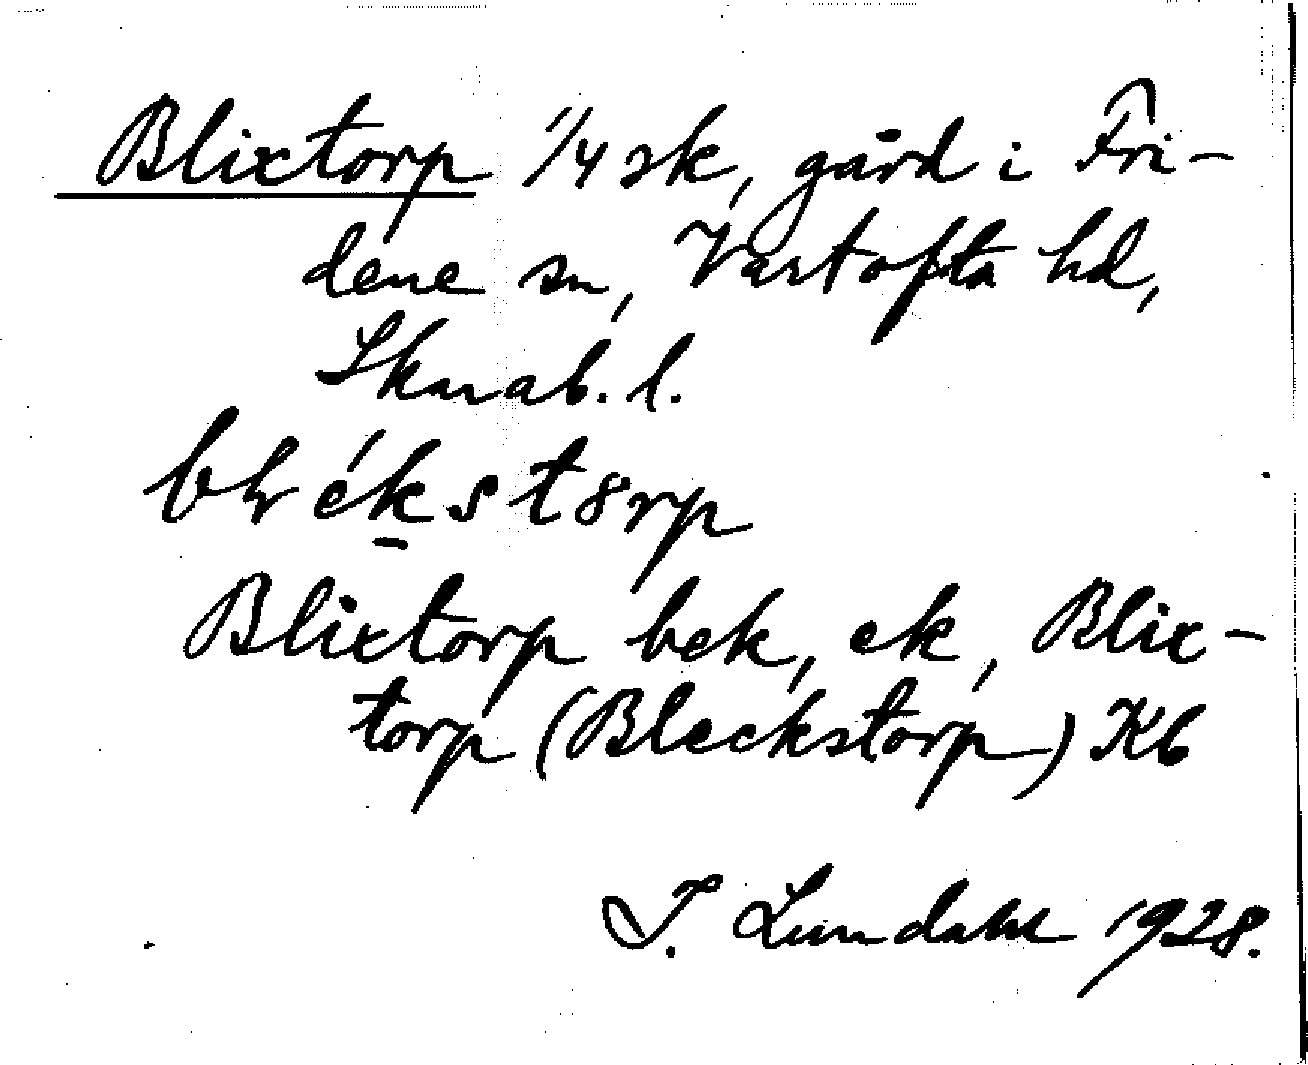 Blixtorp 1/4 sk, gård i Fri-
dene sn, Vartofta hd,
Skarab. l.
Blixtorp bek, ek, Blix-
torp (Bleckstorp) Kb
I. Lundahl 1928.